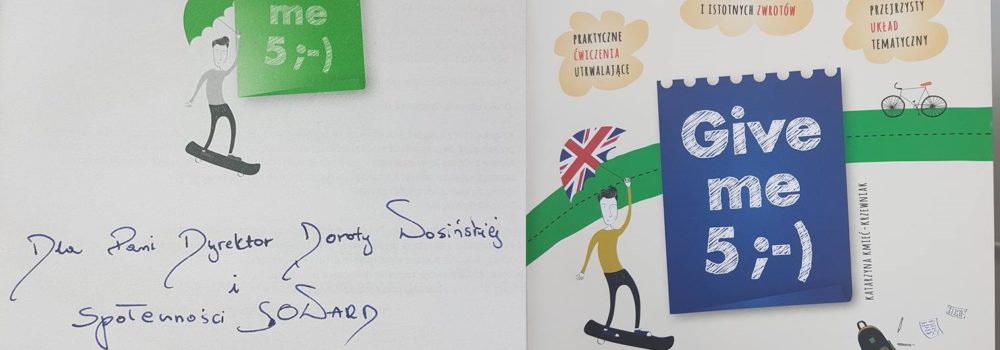 me
5 ;-)
Dla Pani Dyrektor Doroty Sosińskiej
i
Społeczności SOWARD
I ISTOTNYCH ZWROTÓW
PRAKTYCZNE
ĆWICZENIA
UTRWALAJĄCE
PRZEJRZYSTY
UKŁAD
TEMATYCZNY
Give
me
5 ;-)
KATARZYNA KMIEĆ-KRZEWNIAK